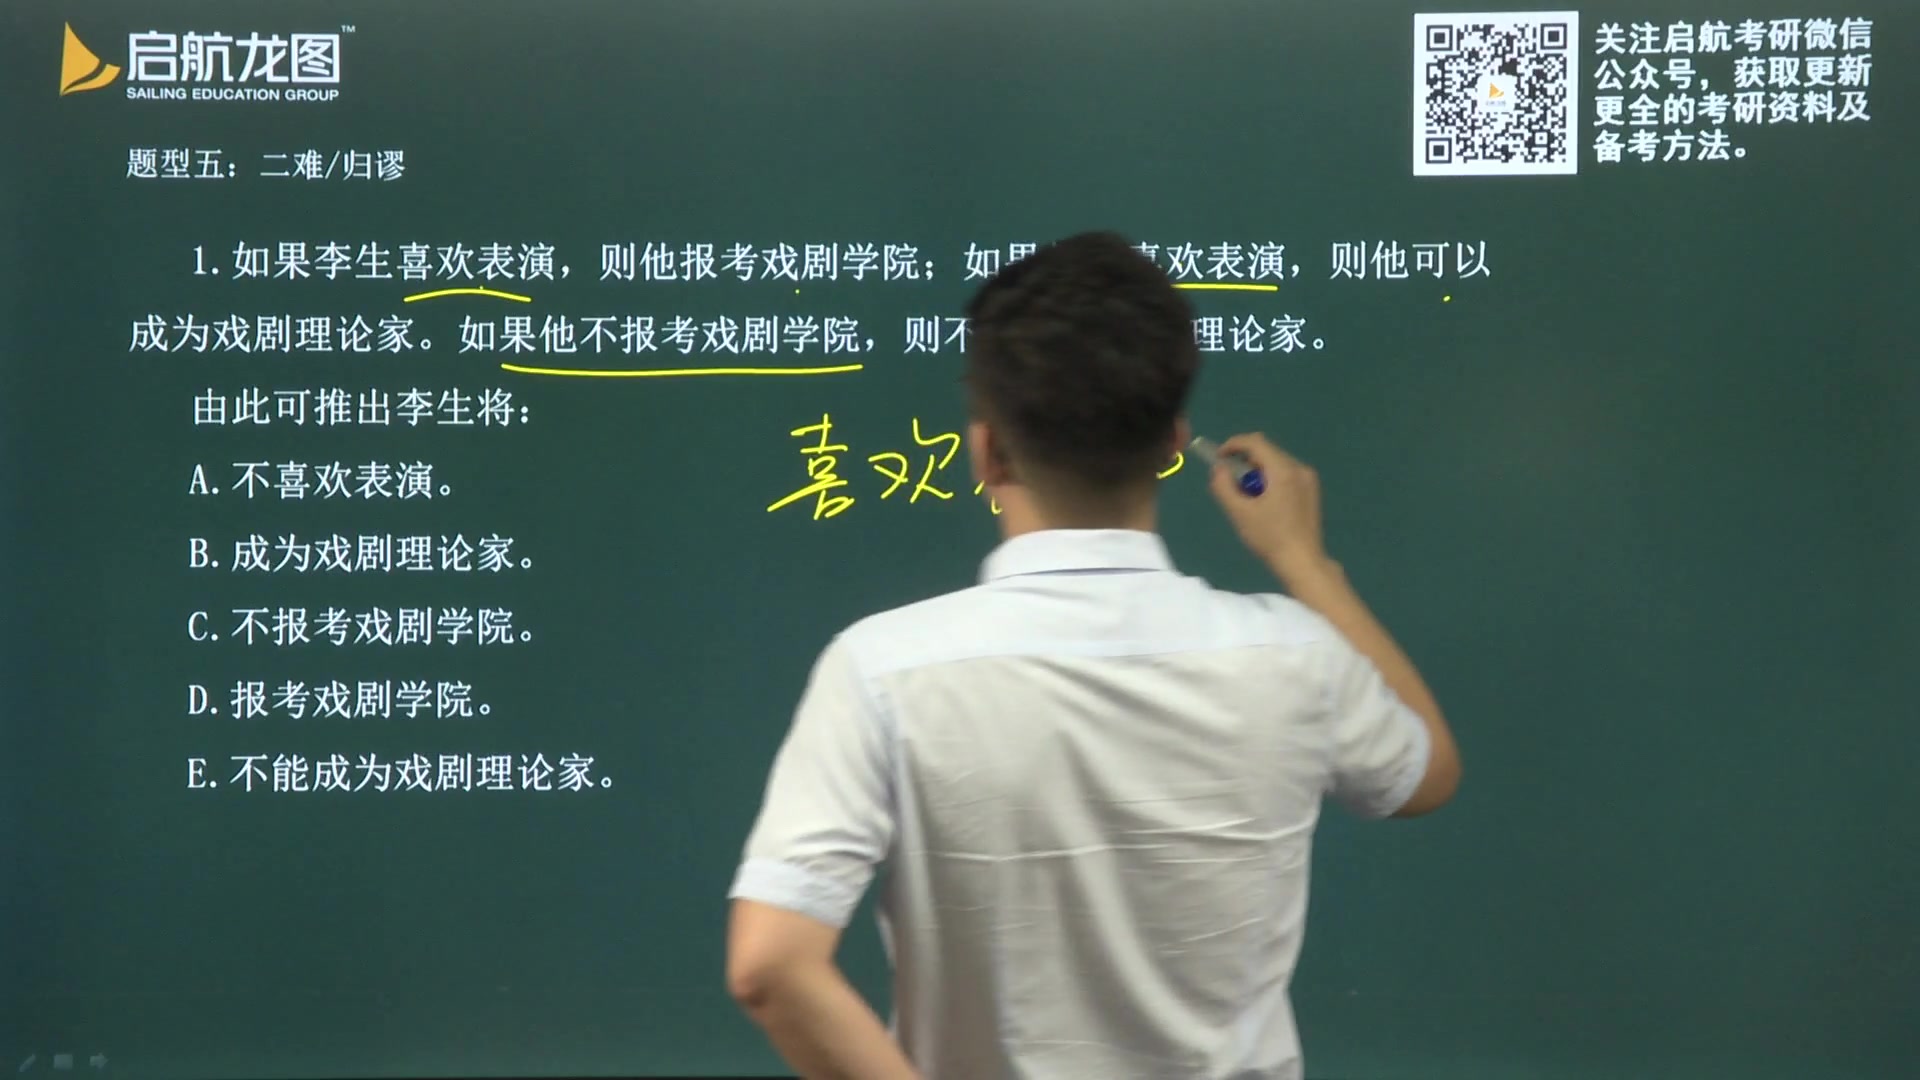 启航龙图™
SAILING EDUCATION GROUP
关注启航考研微信
公众号，获取更新
更全的考研资料及
备考方法。
题型五：二难/归谬
1.如果李生喜欢表演，则他报考戏剧学院；如果 喜欢表演，则他可以
成为戏剧理论家。如果他不报考戏剧学院，则不 理论家。
由此可推出李生将：
喜欢
A.不喜欢表演。
B.成为戏剧理论家。
C.不报考戏剧学院。
D.报考戏剧学院。
E.不能成为戏剧理论家。